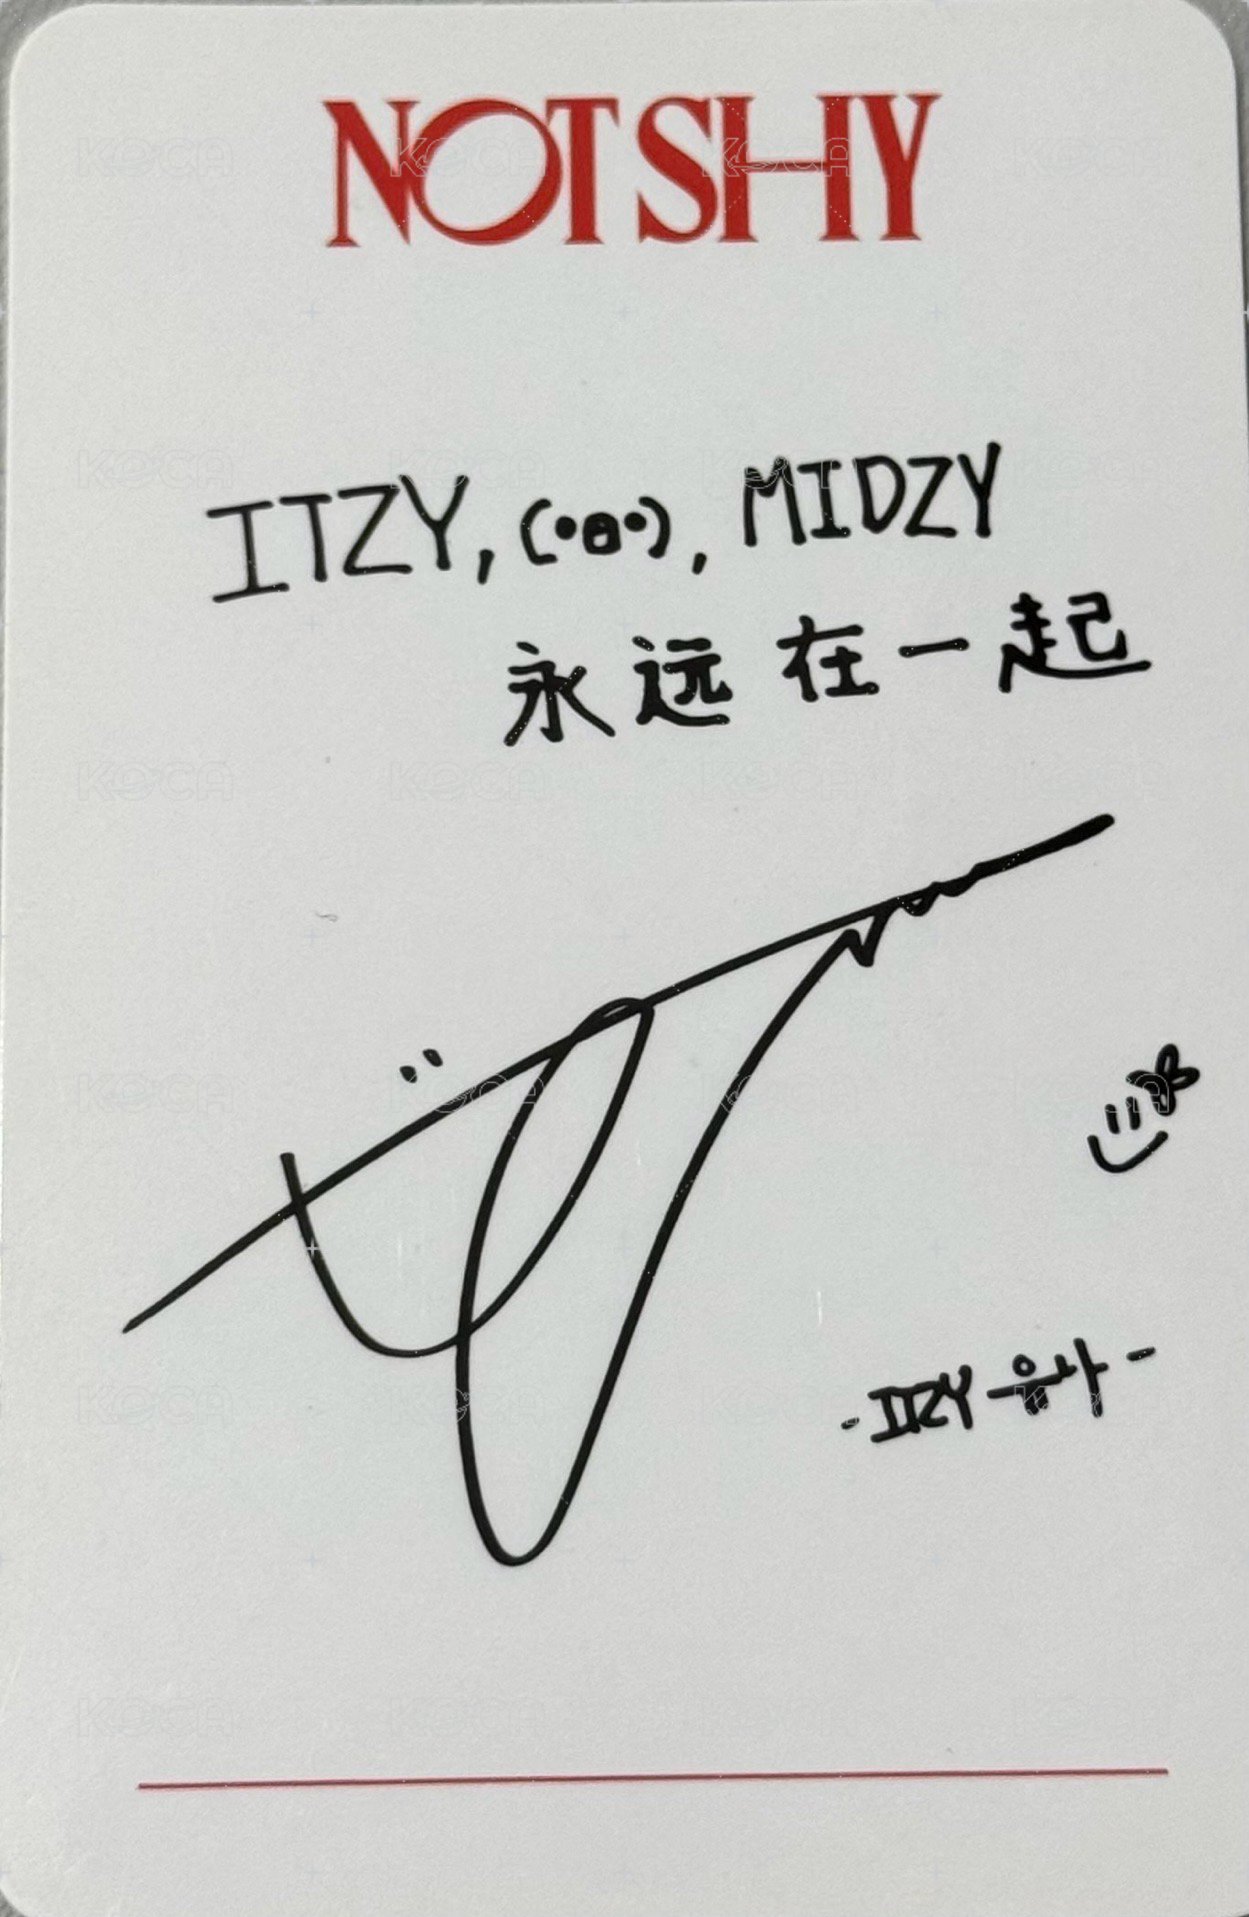 NOT SHY
ITZY, (•ө•), MIDZY
永远在一起
- ITZY 유나 -
KOCA